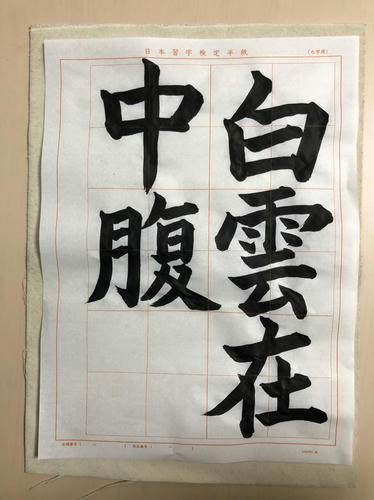 日本習字検定半紙
(七字用)
白雲在
中腹